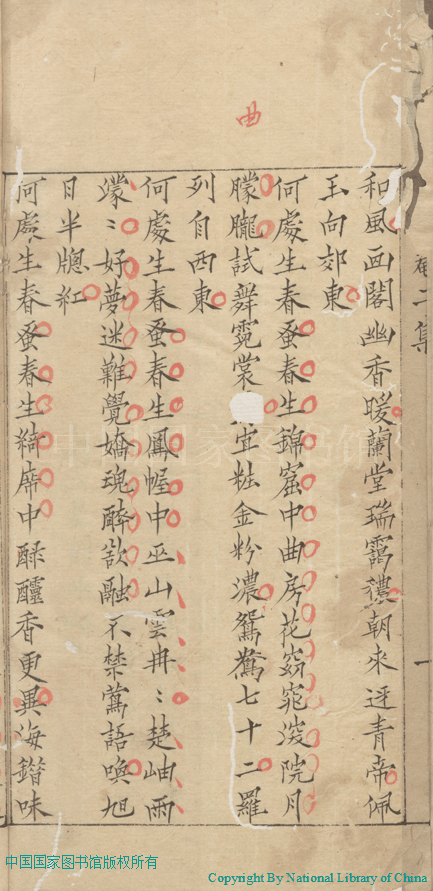 曲
和風画閣幽香暖蘭堂瑞靄濃朝来迓青帝佩
玉向郊東
何處生春蚤春生錦窟中曲房花窈窕深院月
朦朧試舞霓裳宜粧金粉濃鴛鴦七十二羅
列自西東
何處生春蚤春生鳳幄中巫山雲冉〻楚岫雨
濛〻好夢迷難覺嬌魂醉欲融不禁鶯語喚旭
日半牕紅
何處生春蚤春生綺席中醁醽香更異海錯味
二集
一
中国国家图书馆版权所有
Copyright By National Library of China